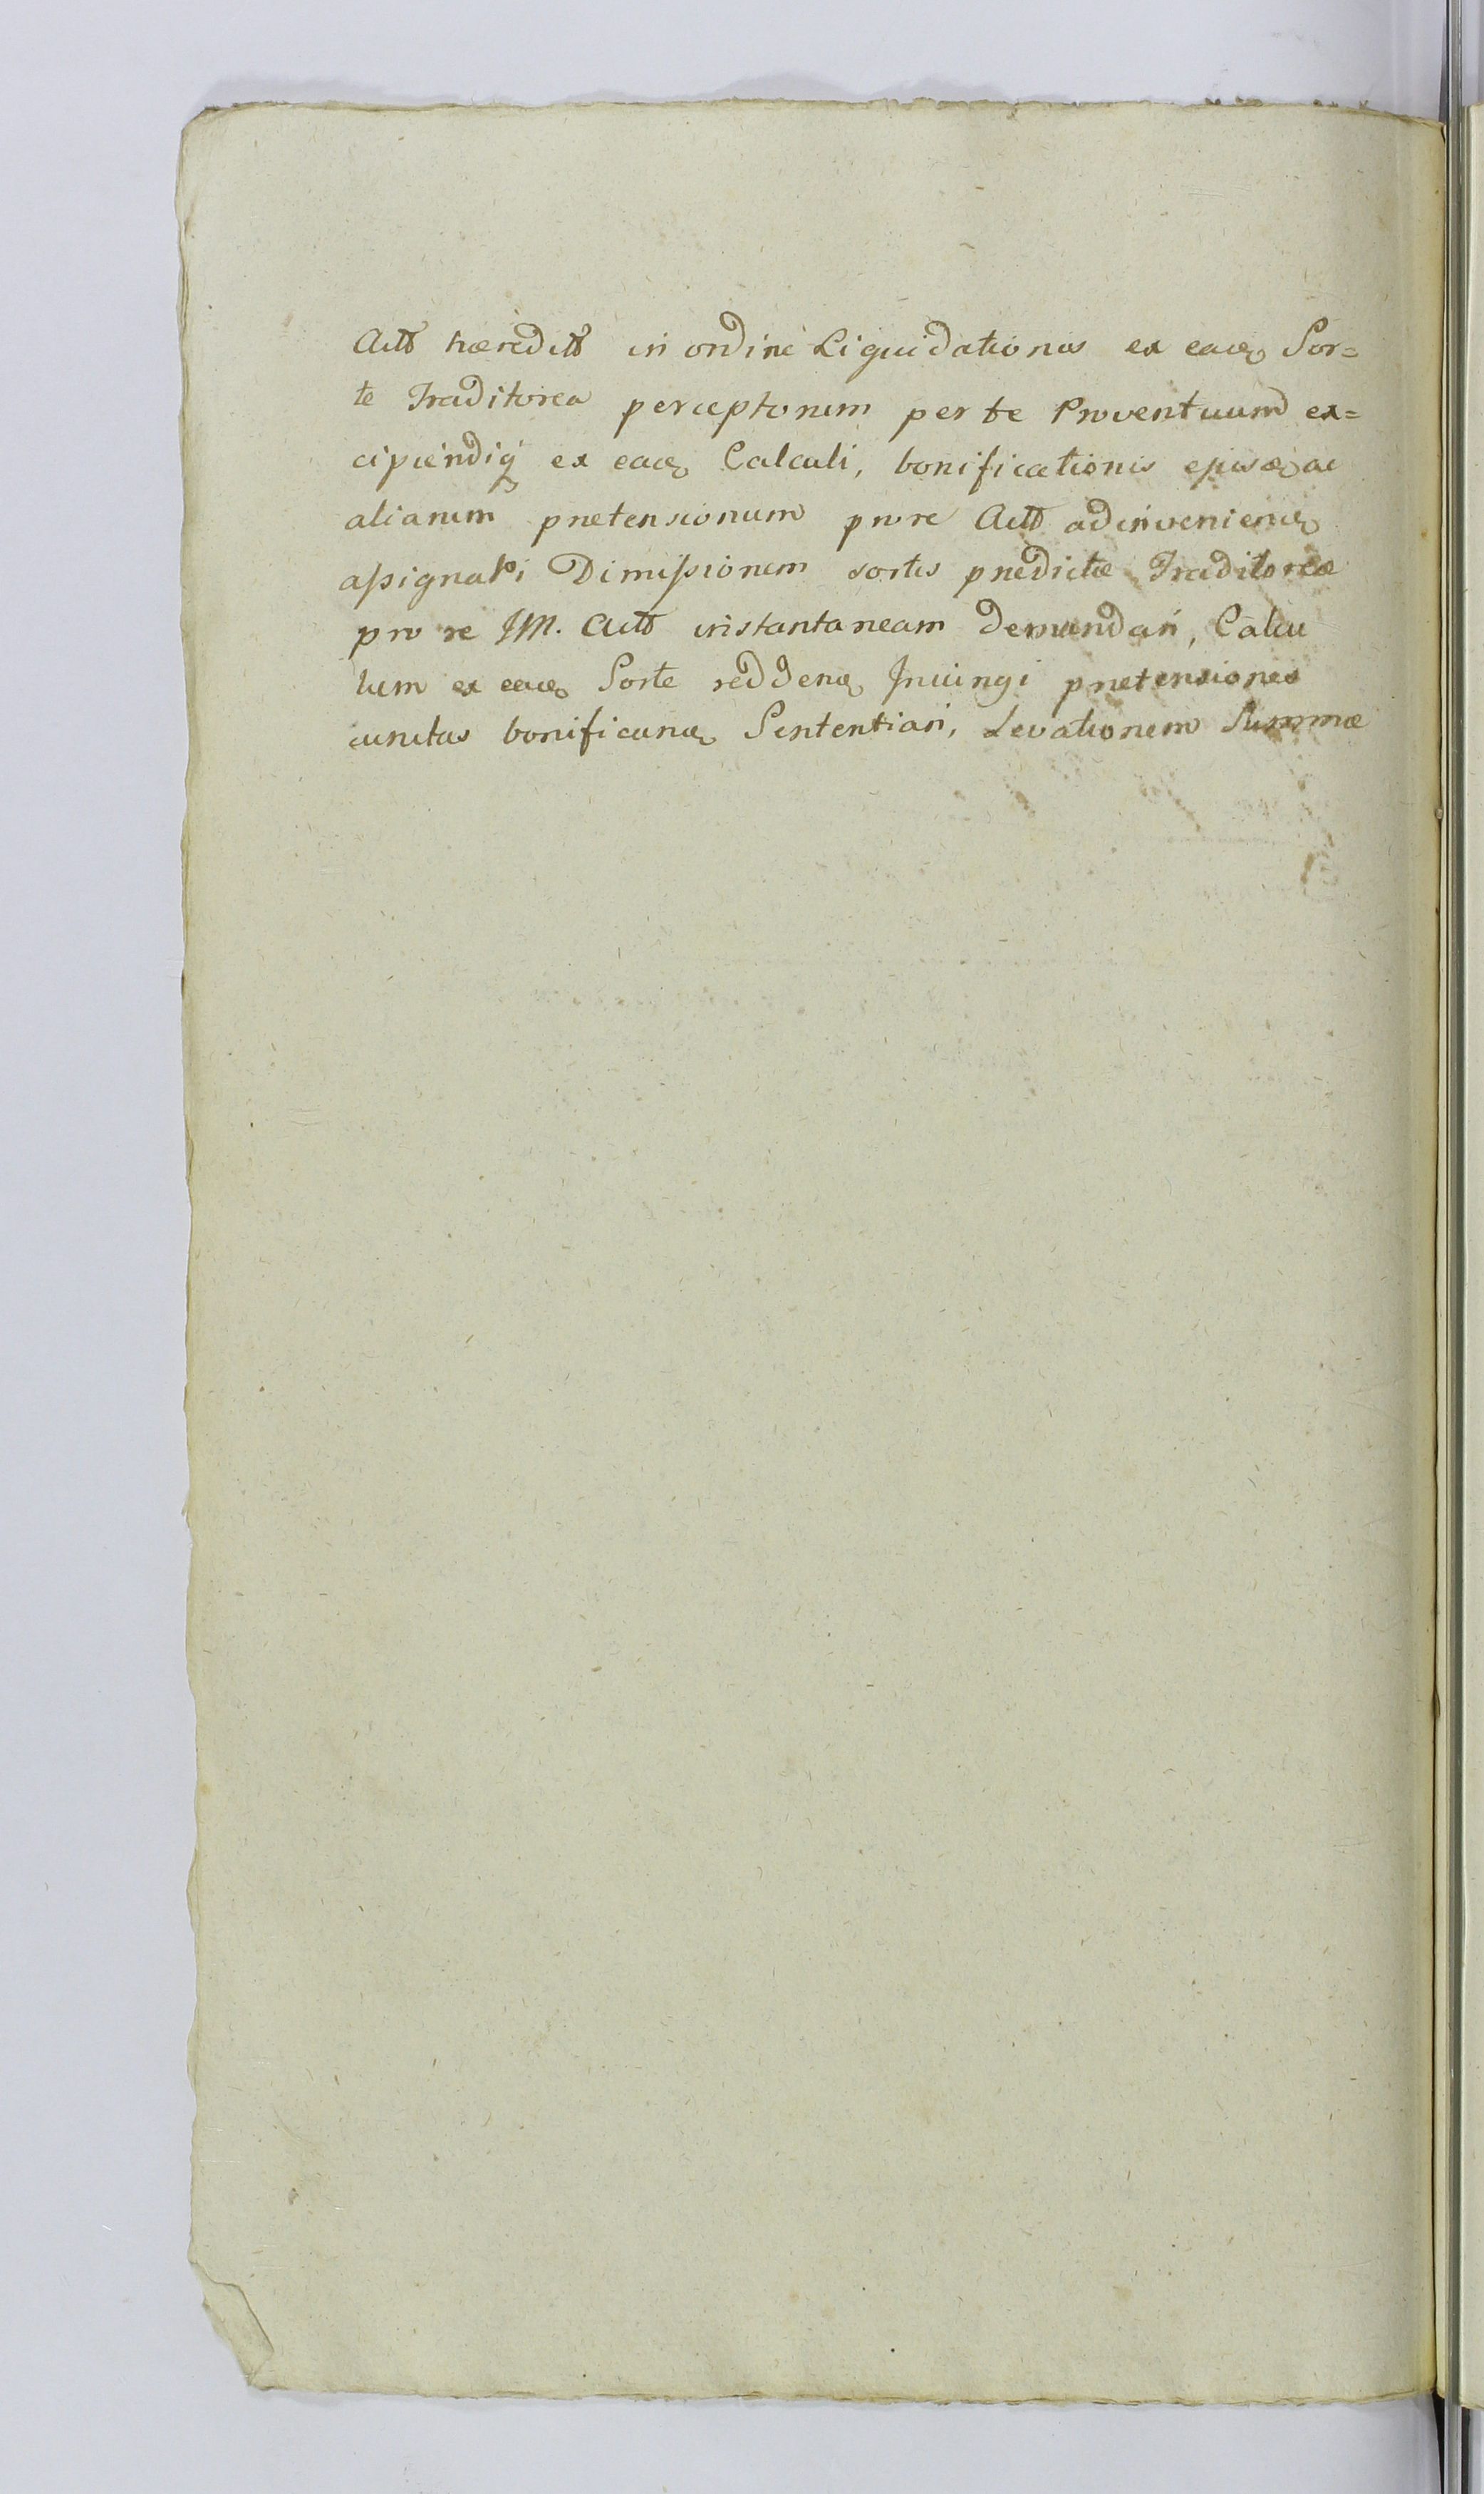 Actt hæreditt in ordine Liquidationis ex eaq Sor=
te Traditorea perceptorum per te Proventuum ex=
cipiendiq ex eaq Calculi, bonificationis ejusq ac
aliarum prætensionum pro re Actt adinvenienq
assignari Dimissionem sortis prædictæ Traditoreæ
pro re IM. Actt instantaneam demandari, Calcu
lum ex eaq Sorte reddenq Injungi prætensiones
cunctas bonificanq Sententiari, Levationem Summæ